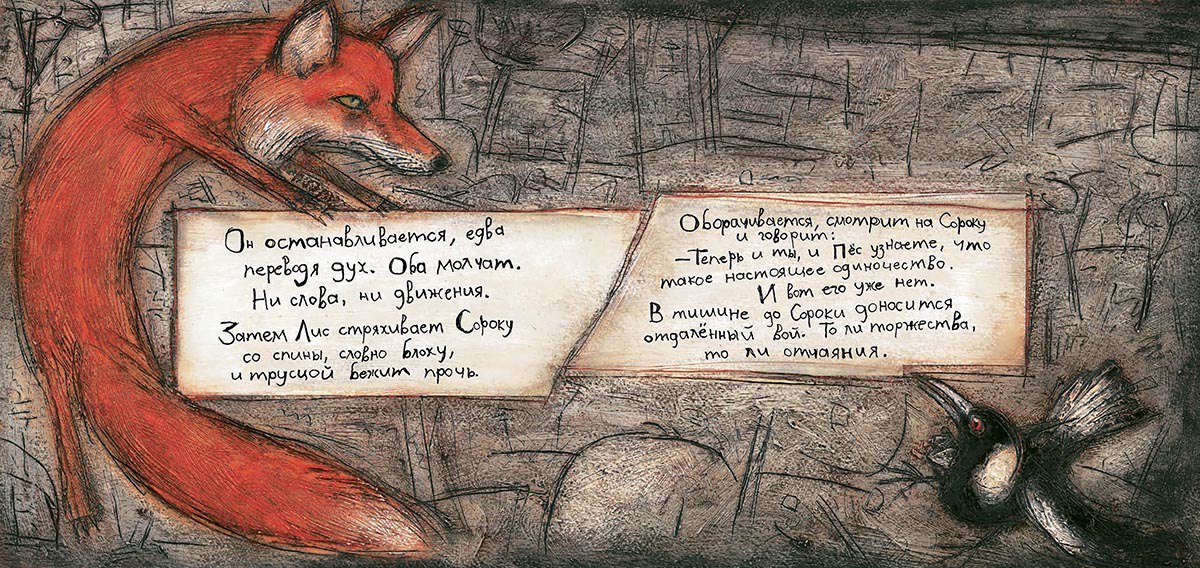 Он останавливается, едва
переводя дух. Оба молчат.
Ни слова, ни движения.
Затем Лис стряхивает Сороку
со спины, словно блоху,
и трусцой бежит прочь.
Оборачивается, смотрит на Сороку
и говорит:
–Теперь и ты, и Пёс узнаете, что
такое настоящее одиночество.
И вот его уже нет.
В тишине до Сороки доносится
отдалённый вой. То ли торжества,
то ли отчаяния.